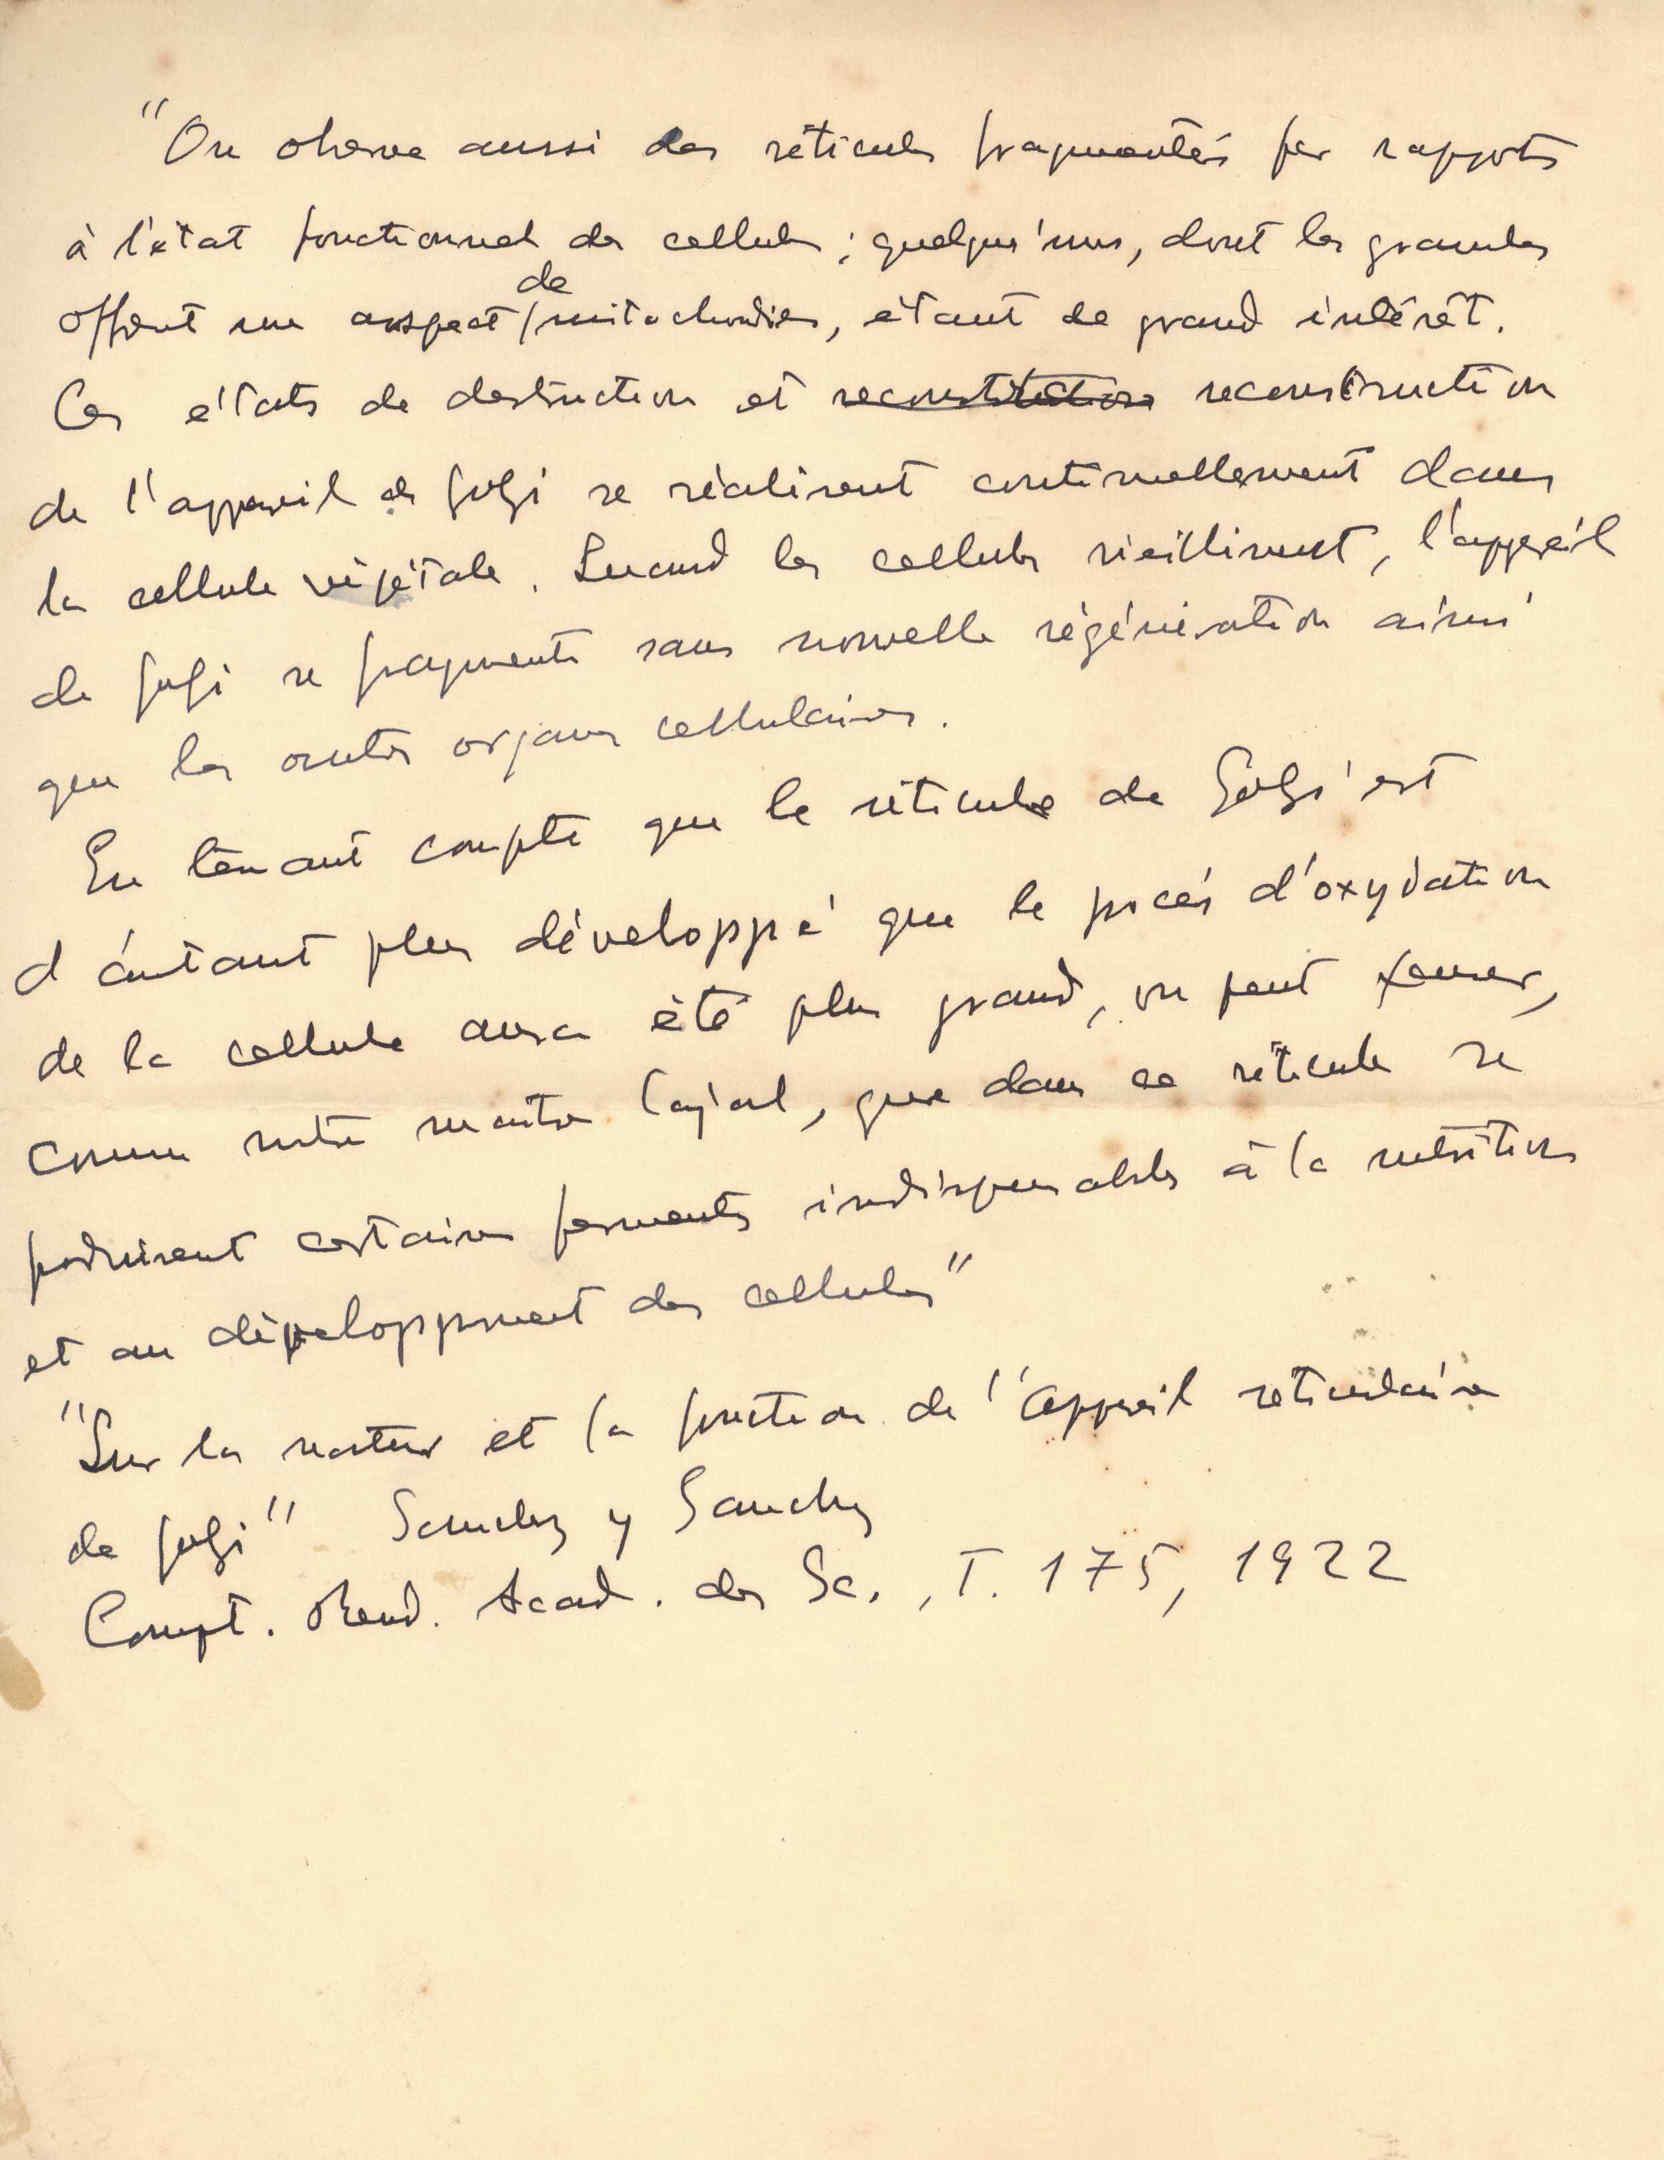 "On observe aussi des réticules fragmentés par rapports
à l'état fonctionnel des cellules; quelqu'uns, dont les granules
offrent un aspect de mitochondries, étant de grand intérêt.
Ces états de destruction et reconstitution reconstruction
de l'appareil de Golgi se réalisent continuellement dans
la cellule végétale. Quand les cellules vieillisent, l'appareil
de Golgi se fragmente sans nouvelle régénération ainsi
que les autres organes cellulaires.
En tenant compte que le réticule de Golgi est
d'autant plus développé que le procés d'oxydation
de la cellule aura été plus grand, on peut penser,
comme notre maître Cajal, que dans ce réticule se
produisent certains ferments indispensables à la nutrition
et au développment des cellules"
"Sur la nature et la fonction de l'appareil reticulaire
de Golgi" Sanchez y Sanchez
Compt. Rend. Acad. des Sc., T. 175, 1922